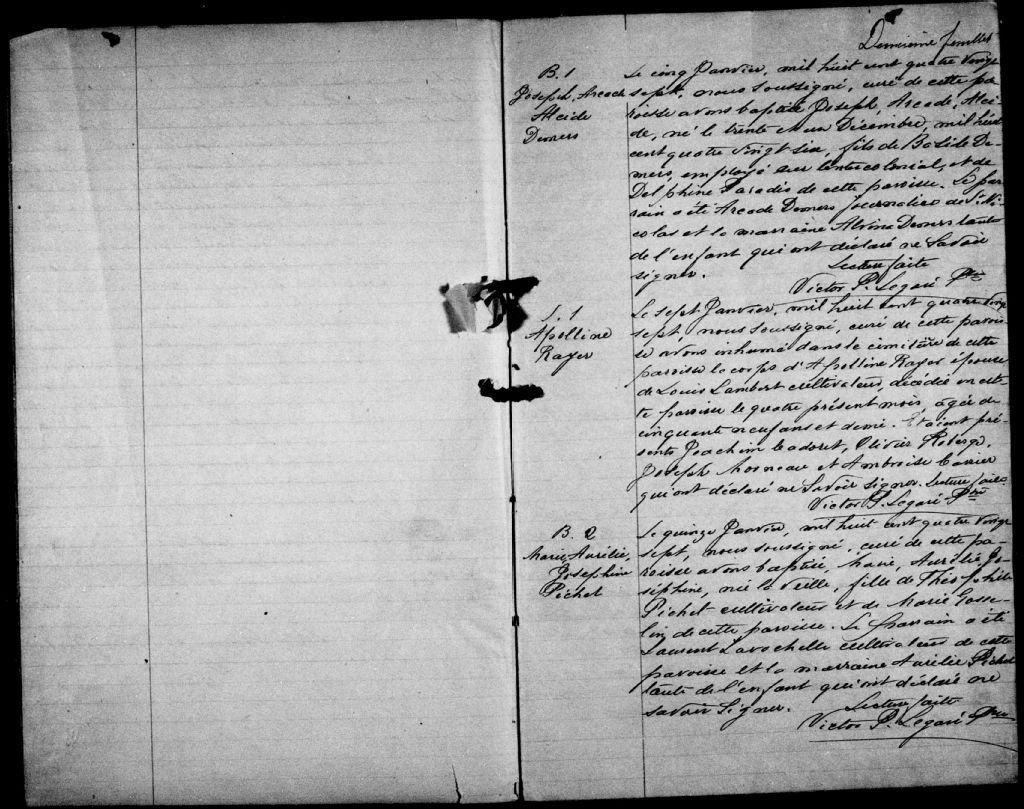 Deuxième feuillet
B. 1
Joseph, Arcade
Alcide
Demers
Le cinq Janvier, mil huit cent quatre vingt
sept, nous soussigné, curé de cette pa-
roisse avons baptisé Joseph, Arcade, Alci-
de, né le trente et un Décembre, mil huit
cent quatre vingt six, fils de Basile De-
mers, employé sur l'intercolonial, et de
Delphine Paradis de cette paroisse. Le par-
rain a été Arcade Demers journalier de St. Ni-
colas et la marraine Alvine Demers tante
de l'enfant qui ont déclaré ne savoir
signer. Lecture faite
Victor P. Legaré Ptre
S. 1
Apolline
Rayer
Le sept Janvier, mil huit cent quatre vingt
sept, nous soussigné, curé de cette parois-
se avons inhumé dans le cimetière de cette
paroisse le corps d'Apolline Rayer épouse
de Louis Lambert cultivateur, décédée en cet-
te paroisse le quatre présent mois, agée de
cinquante neuf ans et demi. Etaient pré-
sents Joachim Cadoret, Olivier Roberge,
Joseph Morneau et Ambroise Carrier
qui ont déclaré ne savoir signer. Lecture faite
Victor P. Legaré Ptre
B. 2
Marie, Aurélie,
Joséphine
Pichet
Le quinze Janvier, mil huit cent quatre vingt
sept, nous soussigné, curé de cette pa-
roisse avons baptisé, Marie, Aurélie Jo-
séphine, née la veille, fille de Théophile
Pichet cultivateur et de Marie Gosse-
lin de cette paroisse. Le parrain a été
Laurent Larochelle cultivateur de cette
paroisse et la marraine Aurélie Pichet
tante de l'enfant qui ont déclaré ne
savoir signer. Lecture faite
Victor P. Legaré Ptre